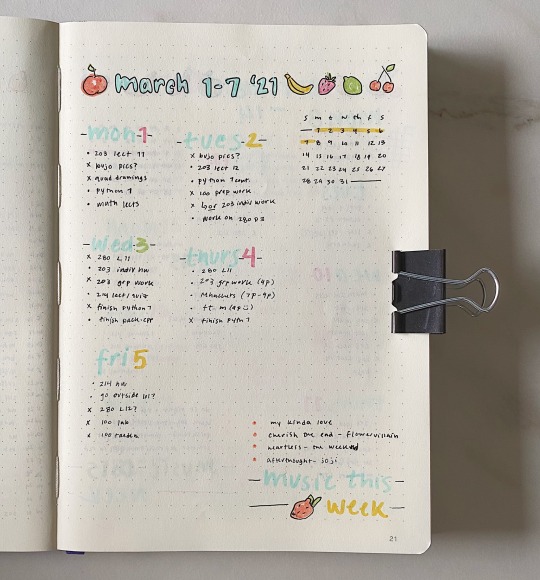 march 1-7 '21
mon 1
• 203 lect 11
x bujo pics?
x quad drawings
• python 7
• math lects
tues 2
x bujo pics?
• 203 lect 12
• python 7 cont.
x 100 prep work
x 203 indiv work
• work on 280 p3
S m t w th f s
1 2 3 4 5 6
7 8 9 10 11 12 13
14 15 16 17 18 19 20
21 22 23 24 25 26 27
28 29 30 31
wed 3
x 280 L11
• 203 indiv hw
x 203 grp work
• 214 lect/quiz
x finish python 7
• finish pack.cpp
thurs 4
• 280 L11
• 203 grp work (4p)
• (7p-9p)
x finish pyth 7
fri 5
• 214 hw
• go outside lol?
x 280 L12?
x 100 lab
x 100
• my kinda love
• cherish the end - flowervillain
• heartless - the weeknd
• afterthought - joji
music this
week
21